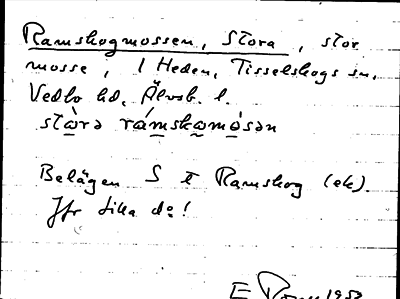 Ramskogmossen, Stora, stor
mosse, i Heden, Tisselskogs sn,
Vedbo hd, Älvsb. l.
stòrə rámskəmòsən
Belägen S t Ramskog (ek).
Jfr Lilla do!
E